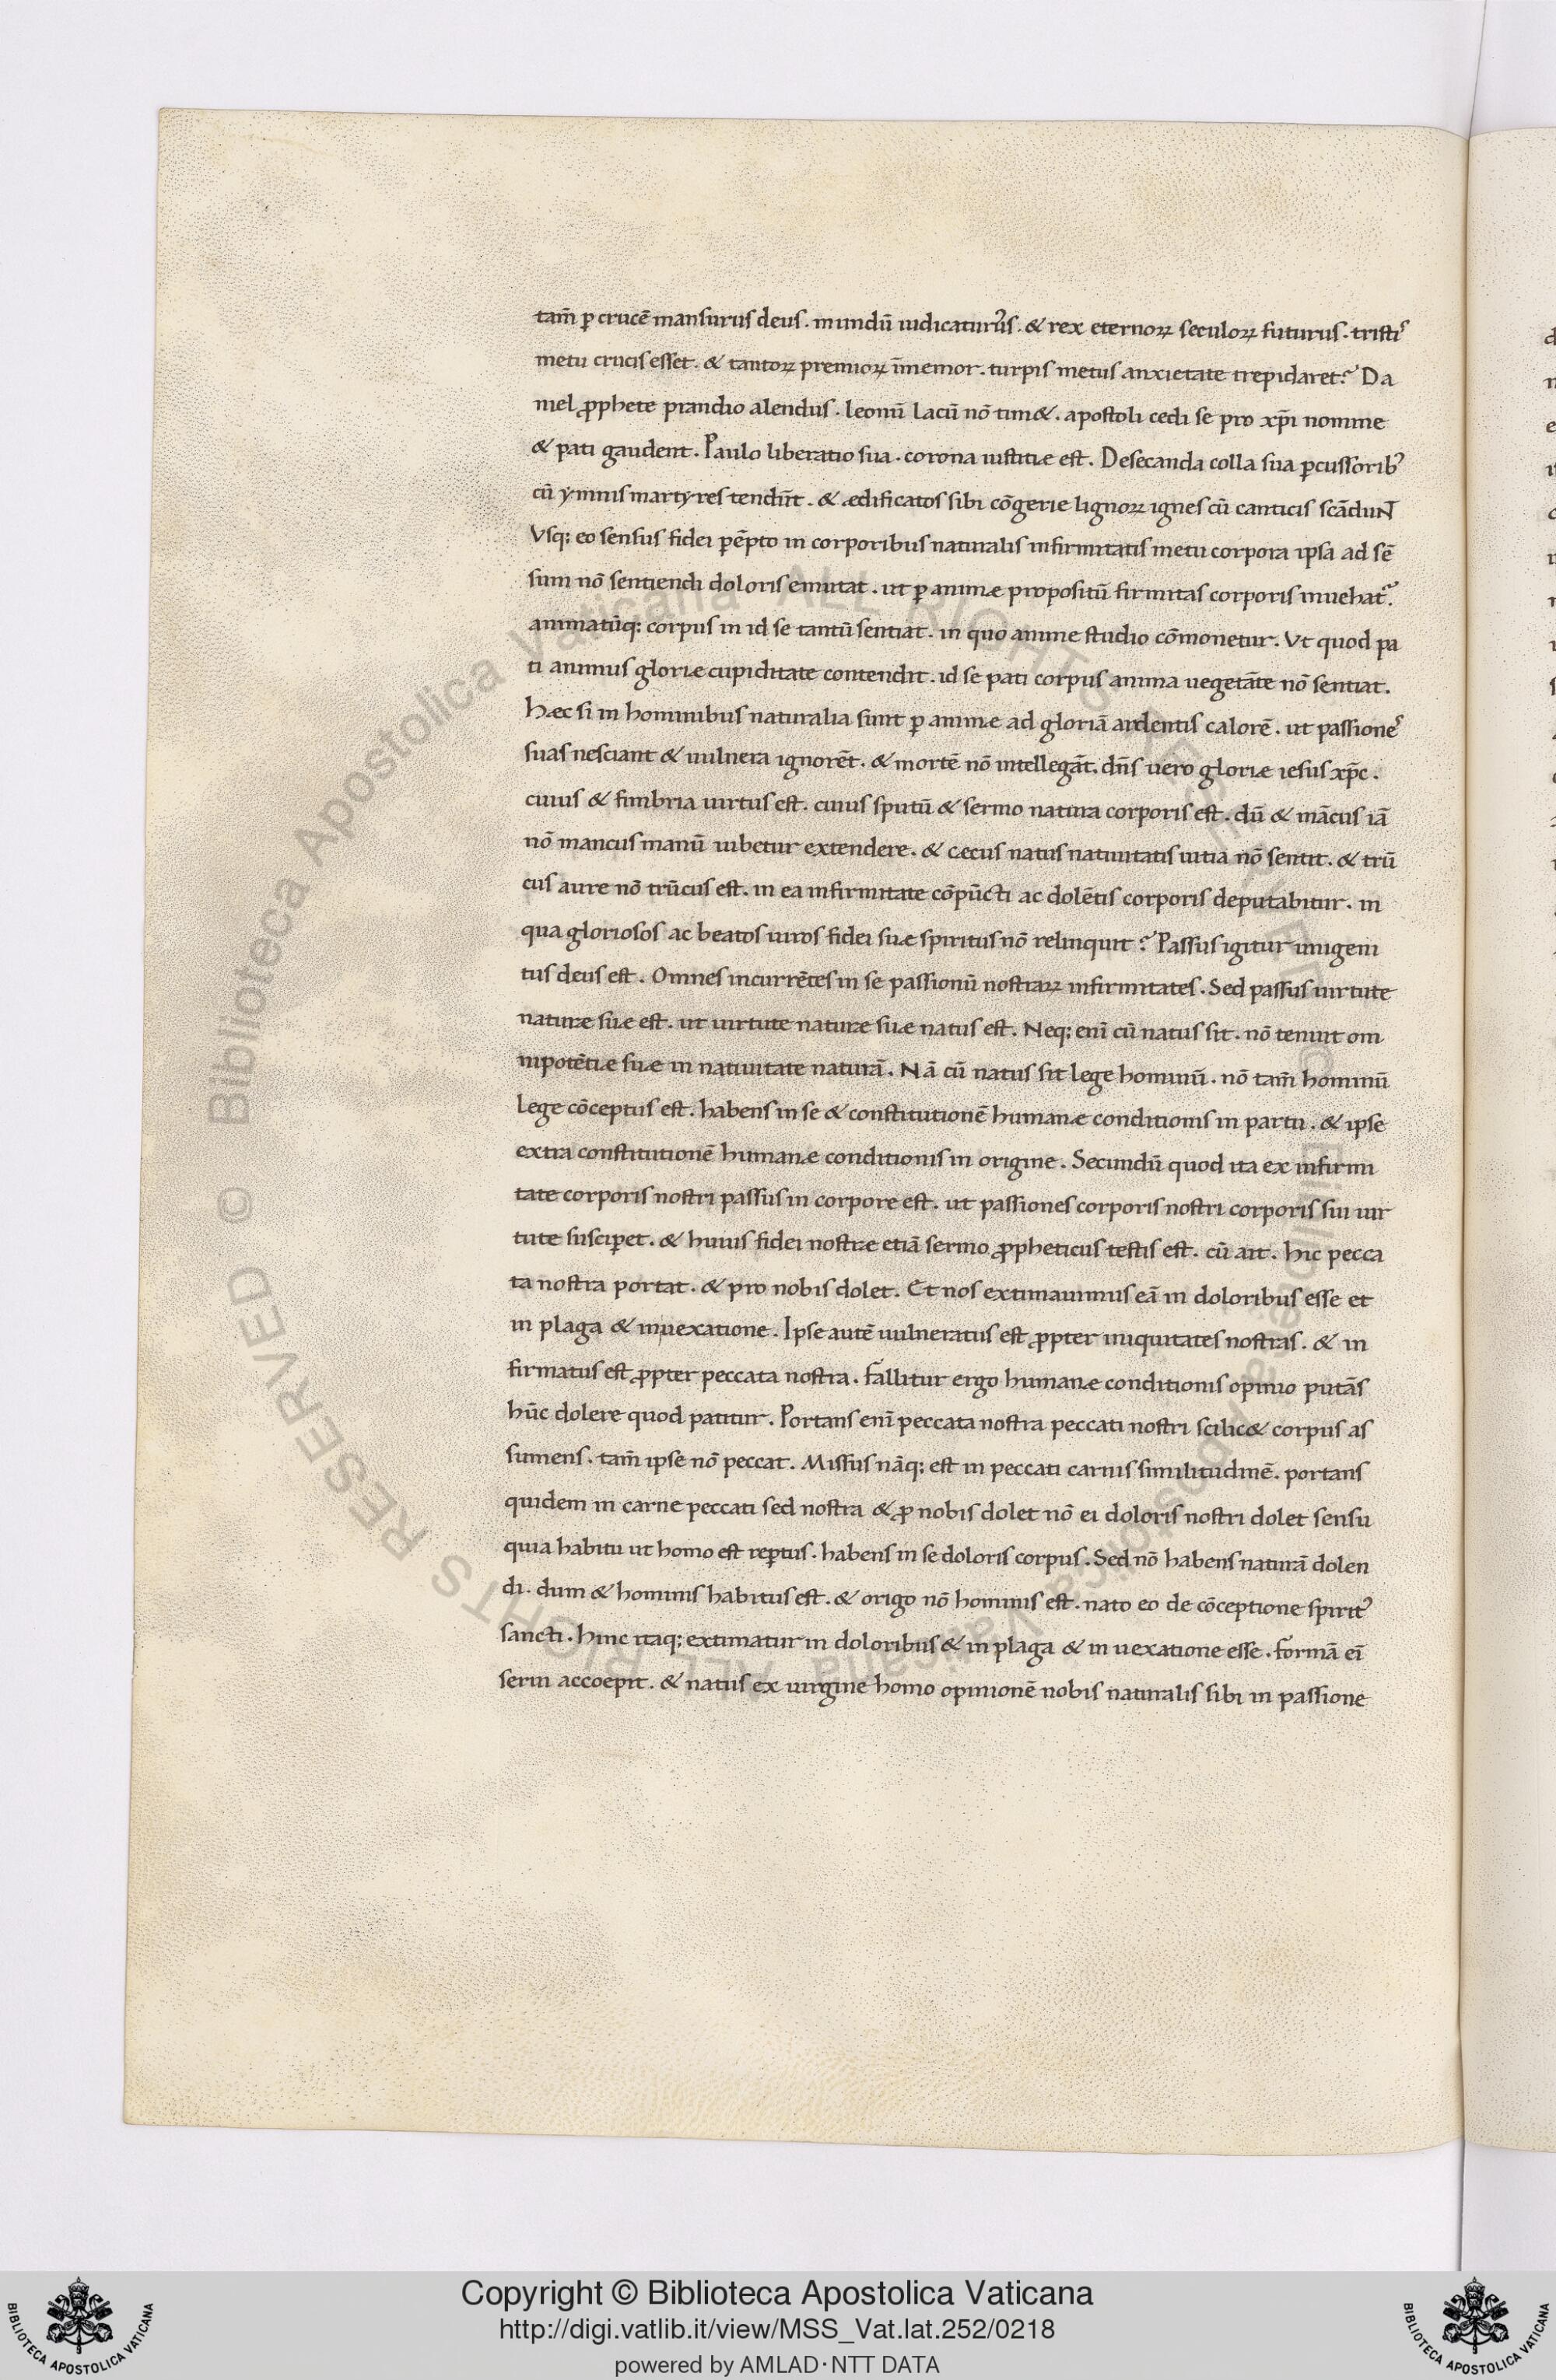 tam̄ ꝑ crucē mansurus deus. mundū iudicaturꝰs. & rex eternoꝝ seculoꝝ futurus. tristis
metu crucis esset. & tantoꝝ premioꝝ īmemor. turpis metus anxietate trepidaret? Da
mel ꝓphete prandio alendus. leonū lacū nō tim&. apostoli cedi se pro xp̄i nomine
& pati gaudent. Paulo liberatio sua. corona iustitiæ est. Desecanda colla sua ꝑcussoribꝰ
cū ymnis martyres tendūt. & ædificatos sibi cōgerie lignoꝝ ignes cū canticis scāduNT
Vsq; eo sensus fidei ꝑēpto in corporibus naturalis infirmitatis metu corpora ipsa ad sē
sum nō sentiendi doloris emutat. ut ꝑ animæ propositū firmitas corporis inuehat᷑.
animatūq; corpus in id se tantū sentiat. in quo anime studio cōmonetur. Vt quod pa
ti animus gloriæ cupiditate contendit. id se pati corpus anima uegetāte nō sentiat.
Hæc si in hominibus naturalia sunt ꝑ animæ ad gloriā ardentis calorē. ut passiones
suas nesciant & uulnera ignorēt. & mortē nō intellegāt. dn̄s uero gloriæ iesus xp̄c.
cuius & fimbria uirtus est. cuius sputū & sermo natura corporis est. dū & mācus iā
nō mancus manū iubetur extendere. & cæcus natus natiuitatis uitia nō sentit. & trū
cus aure nō trūcus est. in ea infirmitate cōpūcti ac dolētis corporis deputabitur. in
qua gloriosos ac beatos uiros fidei suæ spiritus nō relinquit? Passus igitur unigeni
tus deus est. Omnes incurrētes in se passionū nostraꝝ infirmitates. Sed passus uirtute
naturæ suæ est. ut uirtute naturæ suæ natus est. Neq; enī cū natus sit. nō tenuit om
nipotētiæ suæ in natiuitate naturā. Nā cū natus sit lege hominū. nō tam̄ hominū
lege cōceptus est. habens in se & constitutionē humanæ conditionis in partu. & ipse
extra constitutionē humanæ conditionis in origine. Secundū quod ita ex infirmi
tate corporis nostri passus in corpore est. ut passiones corporis nostri corporis sui uir
tute susciꝑet. & huius fidei nostræ etiā sermo ꝓpheticus testis est. cū ait. hic pecca
ta nostra portat. & pro nobis dolet. Et nos extimauimus eā in doloribus esse et
in plaga & inuexatione. Ipse autē uulneratus est ꝓpter iniquitates nostras. & in
firmatus est ꝓpter peccata nostra. Fallitur ergo humanæ conditionis opinio putās
hūc dolere quod patitur. Portans enī peccata nostra peccati nostri scilic& corpus as
sumens. tam̄ ipse nō peccat. Missus nāq; est in peccati carnis similitudinē. portans
quidem in carne peccati sed nostra & ꝓ nobis dolet nō ei doloris nostri dolet sensu
quia habitu ut homo est reꝑtus. habens in se doloris corpus. Sed nō habens naturā dolen
di. dum & hominis habitus est. & origo nō hominis est. nato eo de cōceptione spiritꝰ
sancti. Hinc itaq; extimatur in doloribus & in plaga & in uexatione esse. formā eī
serui accoepit. & natus ex uirgine homo opinionē nobis naturalis sibi in passione
© Biblioteca Apostolica Vaticana ALL RIGHTS RESERVED
Copyright © Biblioteca Apostolica Vaticana
http://digi.vatlib.it/view/MSS_Vat.lat.252/0218
powered by AMLAD·NTT DATA
BIBLIOTECA APOSTOLICA VATICANA
BIBLIOTECA APOSTOLICA VATICANA